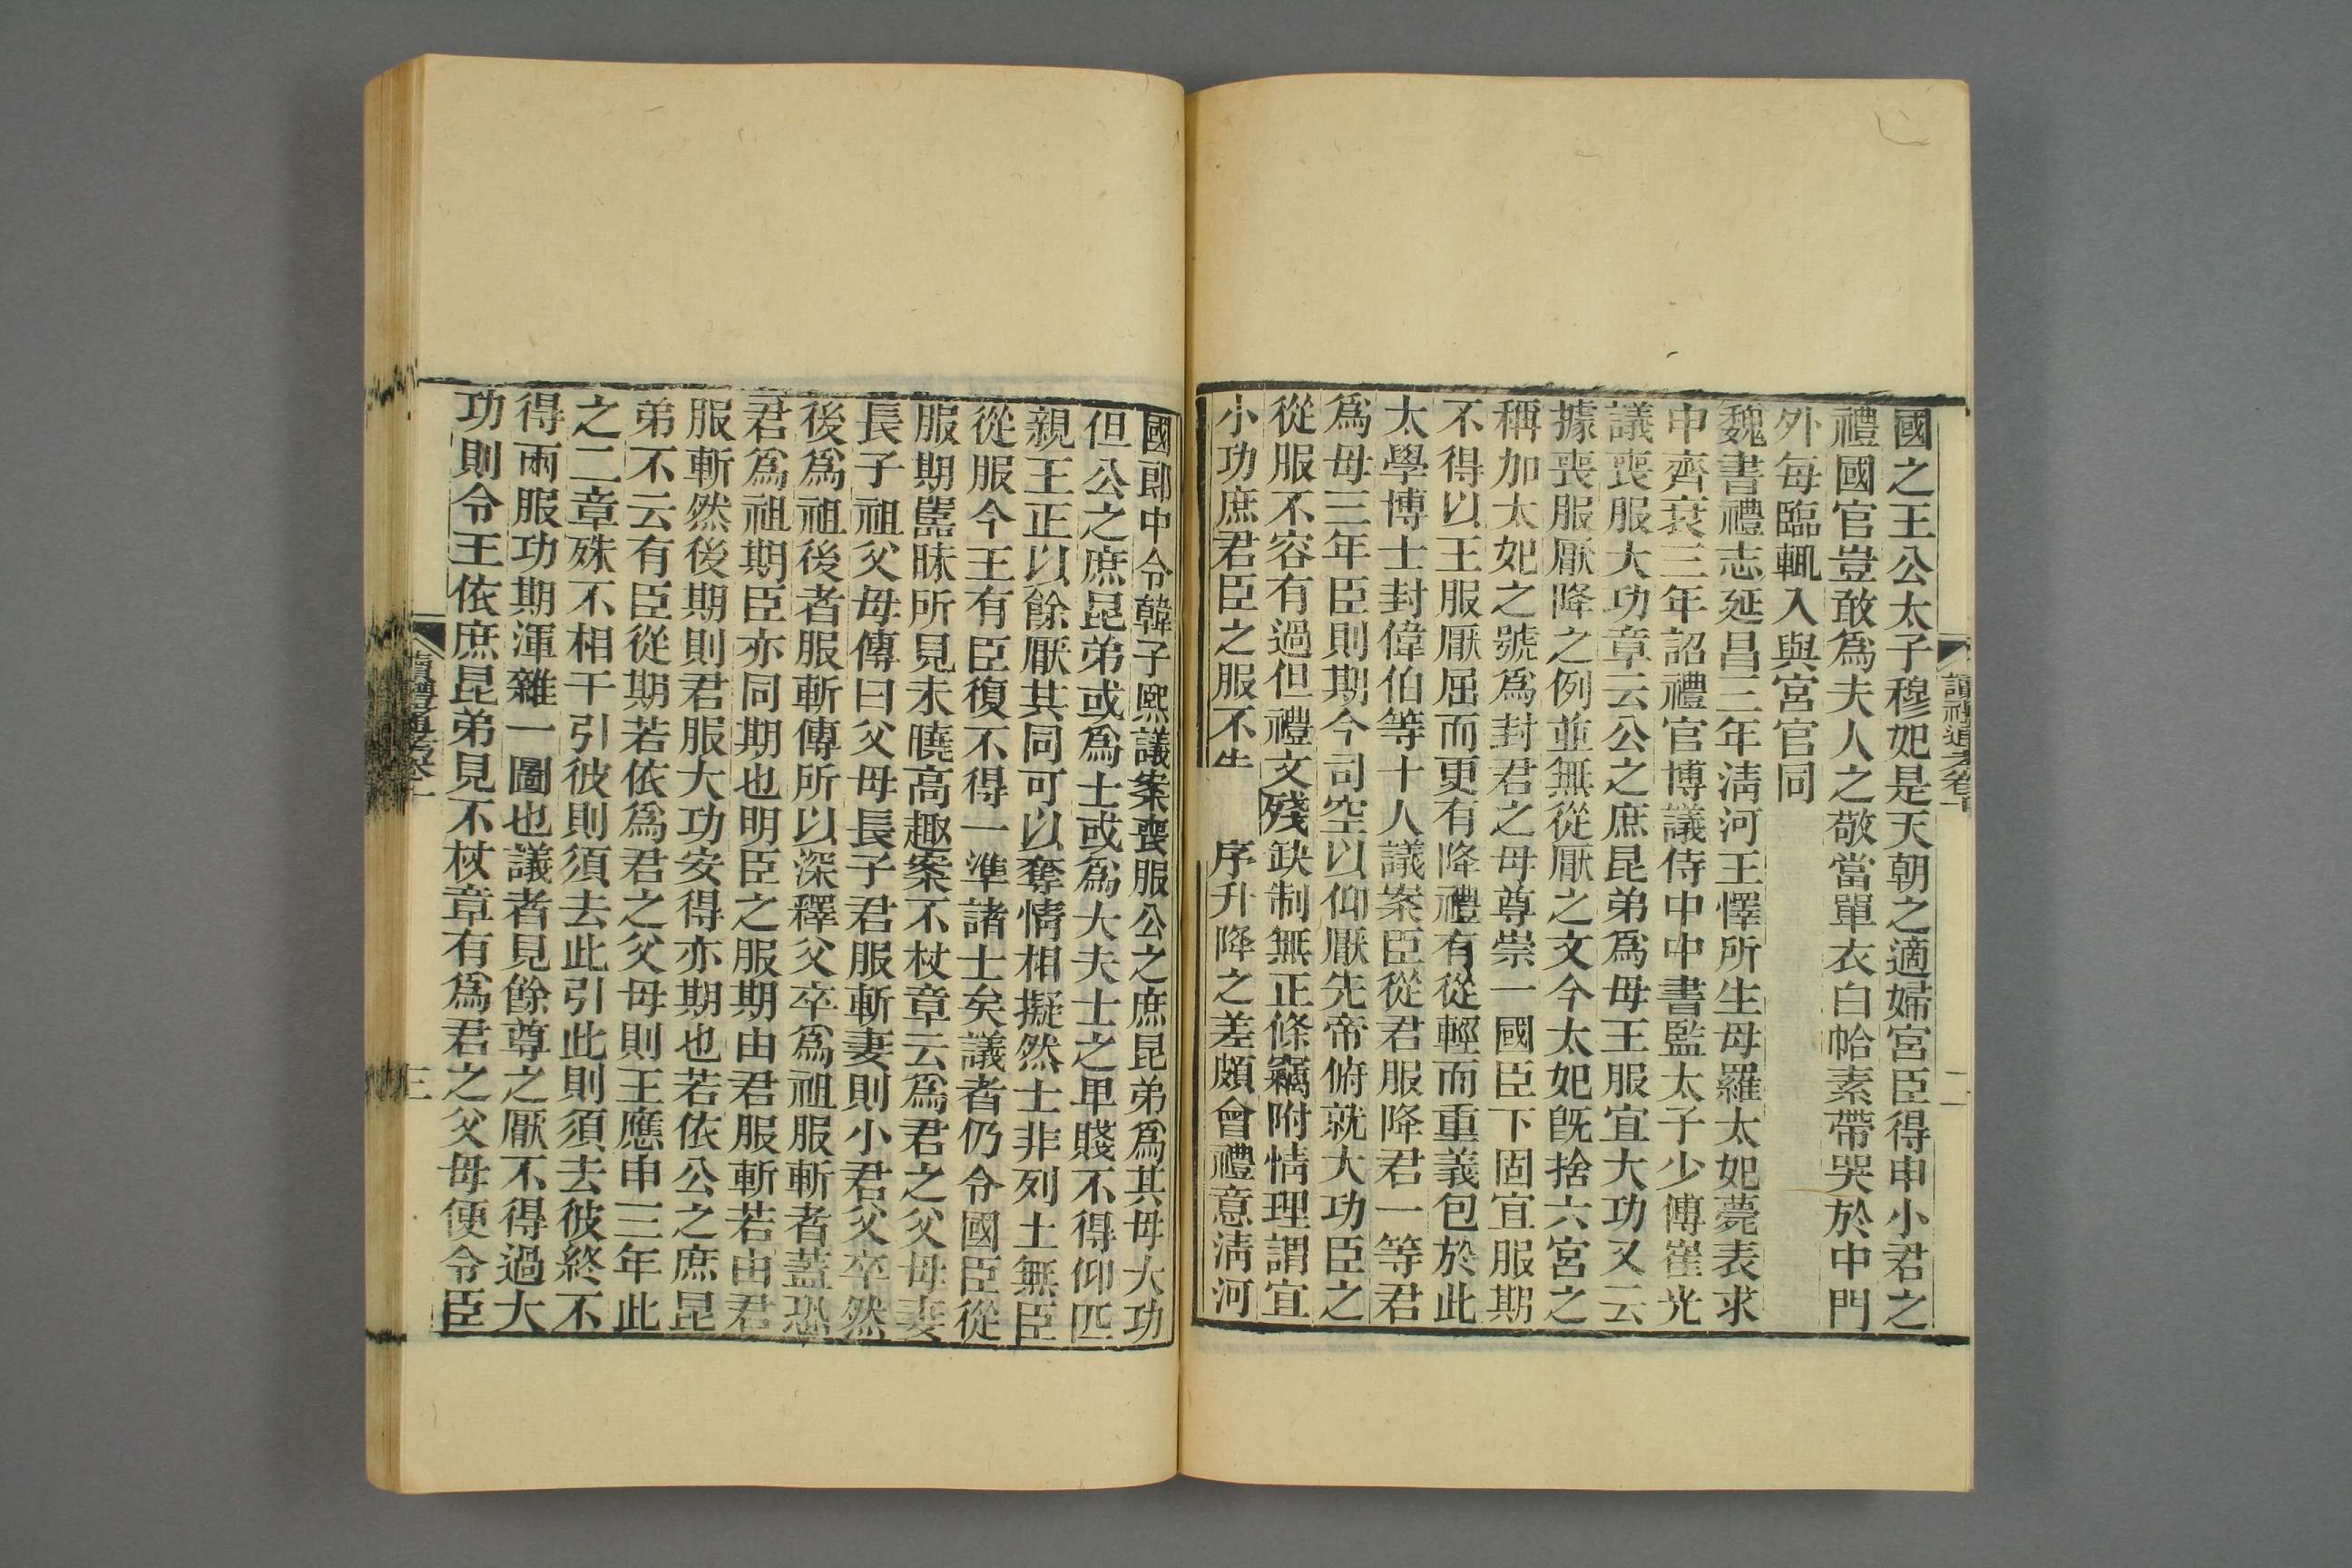 國之王公太子穆妃是天朝之適婦宮臣得申小君之
禮國官豈敢爲夫人之敬當單衣白帢素帶哭於中門
外每臨輒入與宮官同
魏書禮志延昌三年清河王懌所生母羅太妃薨表求
申齊衰三年詔禮官博議侍中中書監太子少傅崔光
議喪服大功章云公之庶昆弟爲母王服宜大功又云
據喪服厭降之例並無從厭之文今太妃既捨六宮之
稱加太妃之號爲封君之母尊崇一國臣下固宜服期
不得以王服厭屈而更有降禮有從輕而重義包於此
太學博士封偉伯等十人議案臣從君服降君一等君
爲母三年臣則期今司空以仰厭先帝俯就大功臣之
從服不容有過但禮文殘缺制無正條竊附情理謂宜
小功庶君臣之服不失序升降之差頗會禮意清河
國郎中令韓子熙議案喪服公之庶昆弟爲其母大功
但公之庶昆弟或爲士或爲大夫士之卑賤不得仰匹
親王正以餘厭其同可以奪情相擬然士非列土無臣
從服今王有臣復不得一準諸士矣議者仍令國臣從
服期嚚昧所見未曉高趣案不杖章云爲君之父母妻
長子祖父母傳曰父母長子君服斬妻則小君父卒然
後爲祖後者服斬傳所以深釋父卒爲祖服斬者蓋恐
君爲祖期臣亦同期也明臣之服期由君服斬若由君
服斬然後期則君服大功安得亦期也若依公之庶昆
弟不云有臣從期若依爲君之父母則王應申三年此
之二章殊不相干引彼則須去此引此則須去彼終不
得兩服功期渾雜一圖也議者見餘尊之厭不得過大
功則令王依庶昆弟見不杖章有爲君之父母便令臣
讀禮通考卷十
二
三